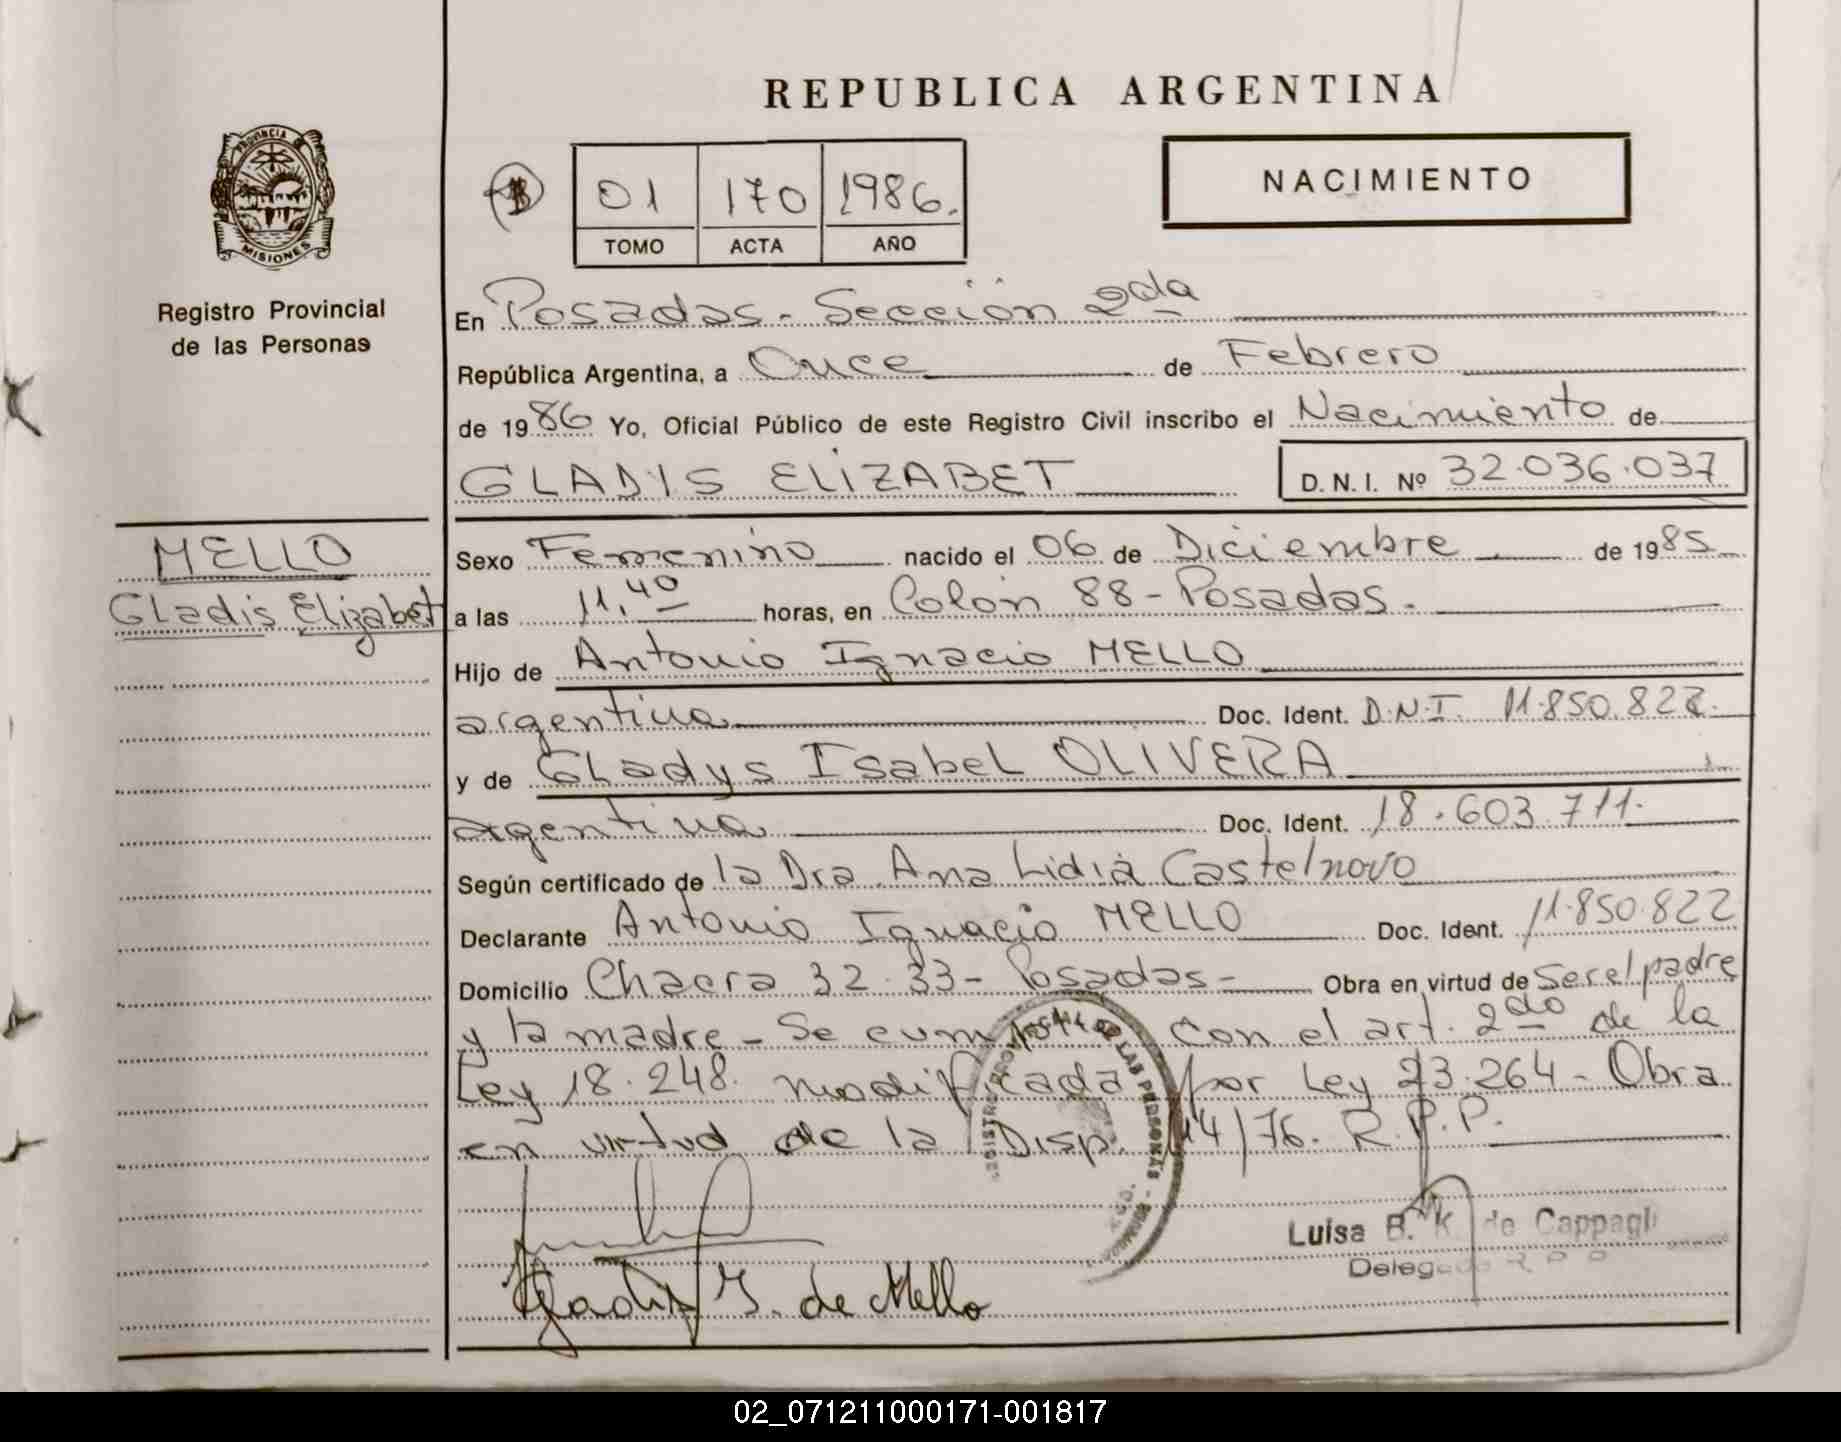 REPUBLICA ARGENTINA
PROVINCIA DE MISIONES
Registro Provincial
de las Personas
01 170 1986.
TOMO ACTA AÑO
NACIMIENTO
En Posadas - Sección 2da
República Argentina, a Once de Febrero
de 1986 Yo, Oficial Público de este Registro Civil inscribo el Nacimiento de
GLADIS ELIZABET D. N. I. Nº 32.036.037
MELLO
Gladis Elizabet
Sexo Femenino nacido el 06 de Diciembre de 1985
a las 11,40 horas, en Colón 88 - Posadas.
Hijo de Antonio Ignacio MELLO
argentina Doc. Ident. D.N.I. 11.850.822.
y de Gladys Isabel OLIVERA
argentina Doc. Ident. 18.603.711.
Según certificado de la Dra Ana Lidia Castelnovo
Declarante Antonio Ignacio MELLO Doc. Ident. 11.850.822
Domicilio Chacra 32.33 - Posadas - Obra en virtud de ser el padre
y la madre - Se con el art. 2do de la
Ley 18.248. modificada por Ley 23.264 - Obra
en virtud de la Disp. 14/76. R.P.P.
REGISTRO PROVINCIAL DE LAS PERSONAS
Luisa B. K. de Cappagli
Delegada R P P
Gladys I. de Mello
02_071211000171-001817